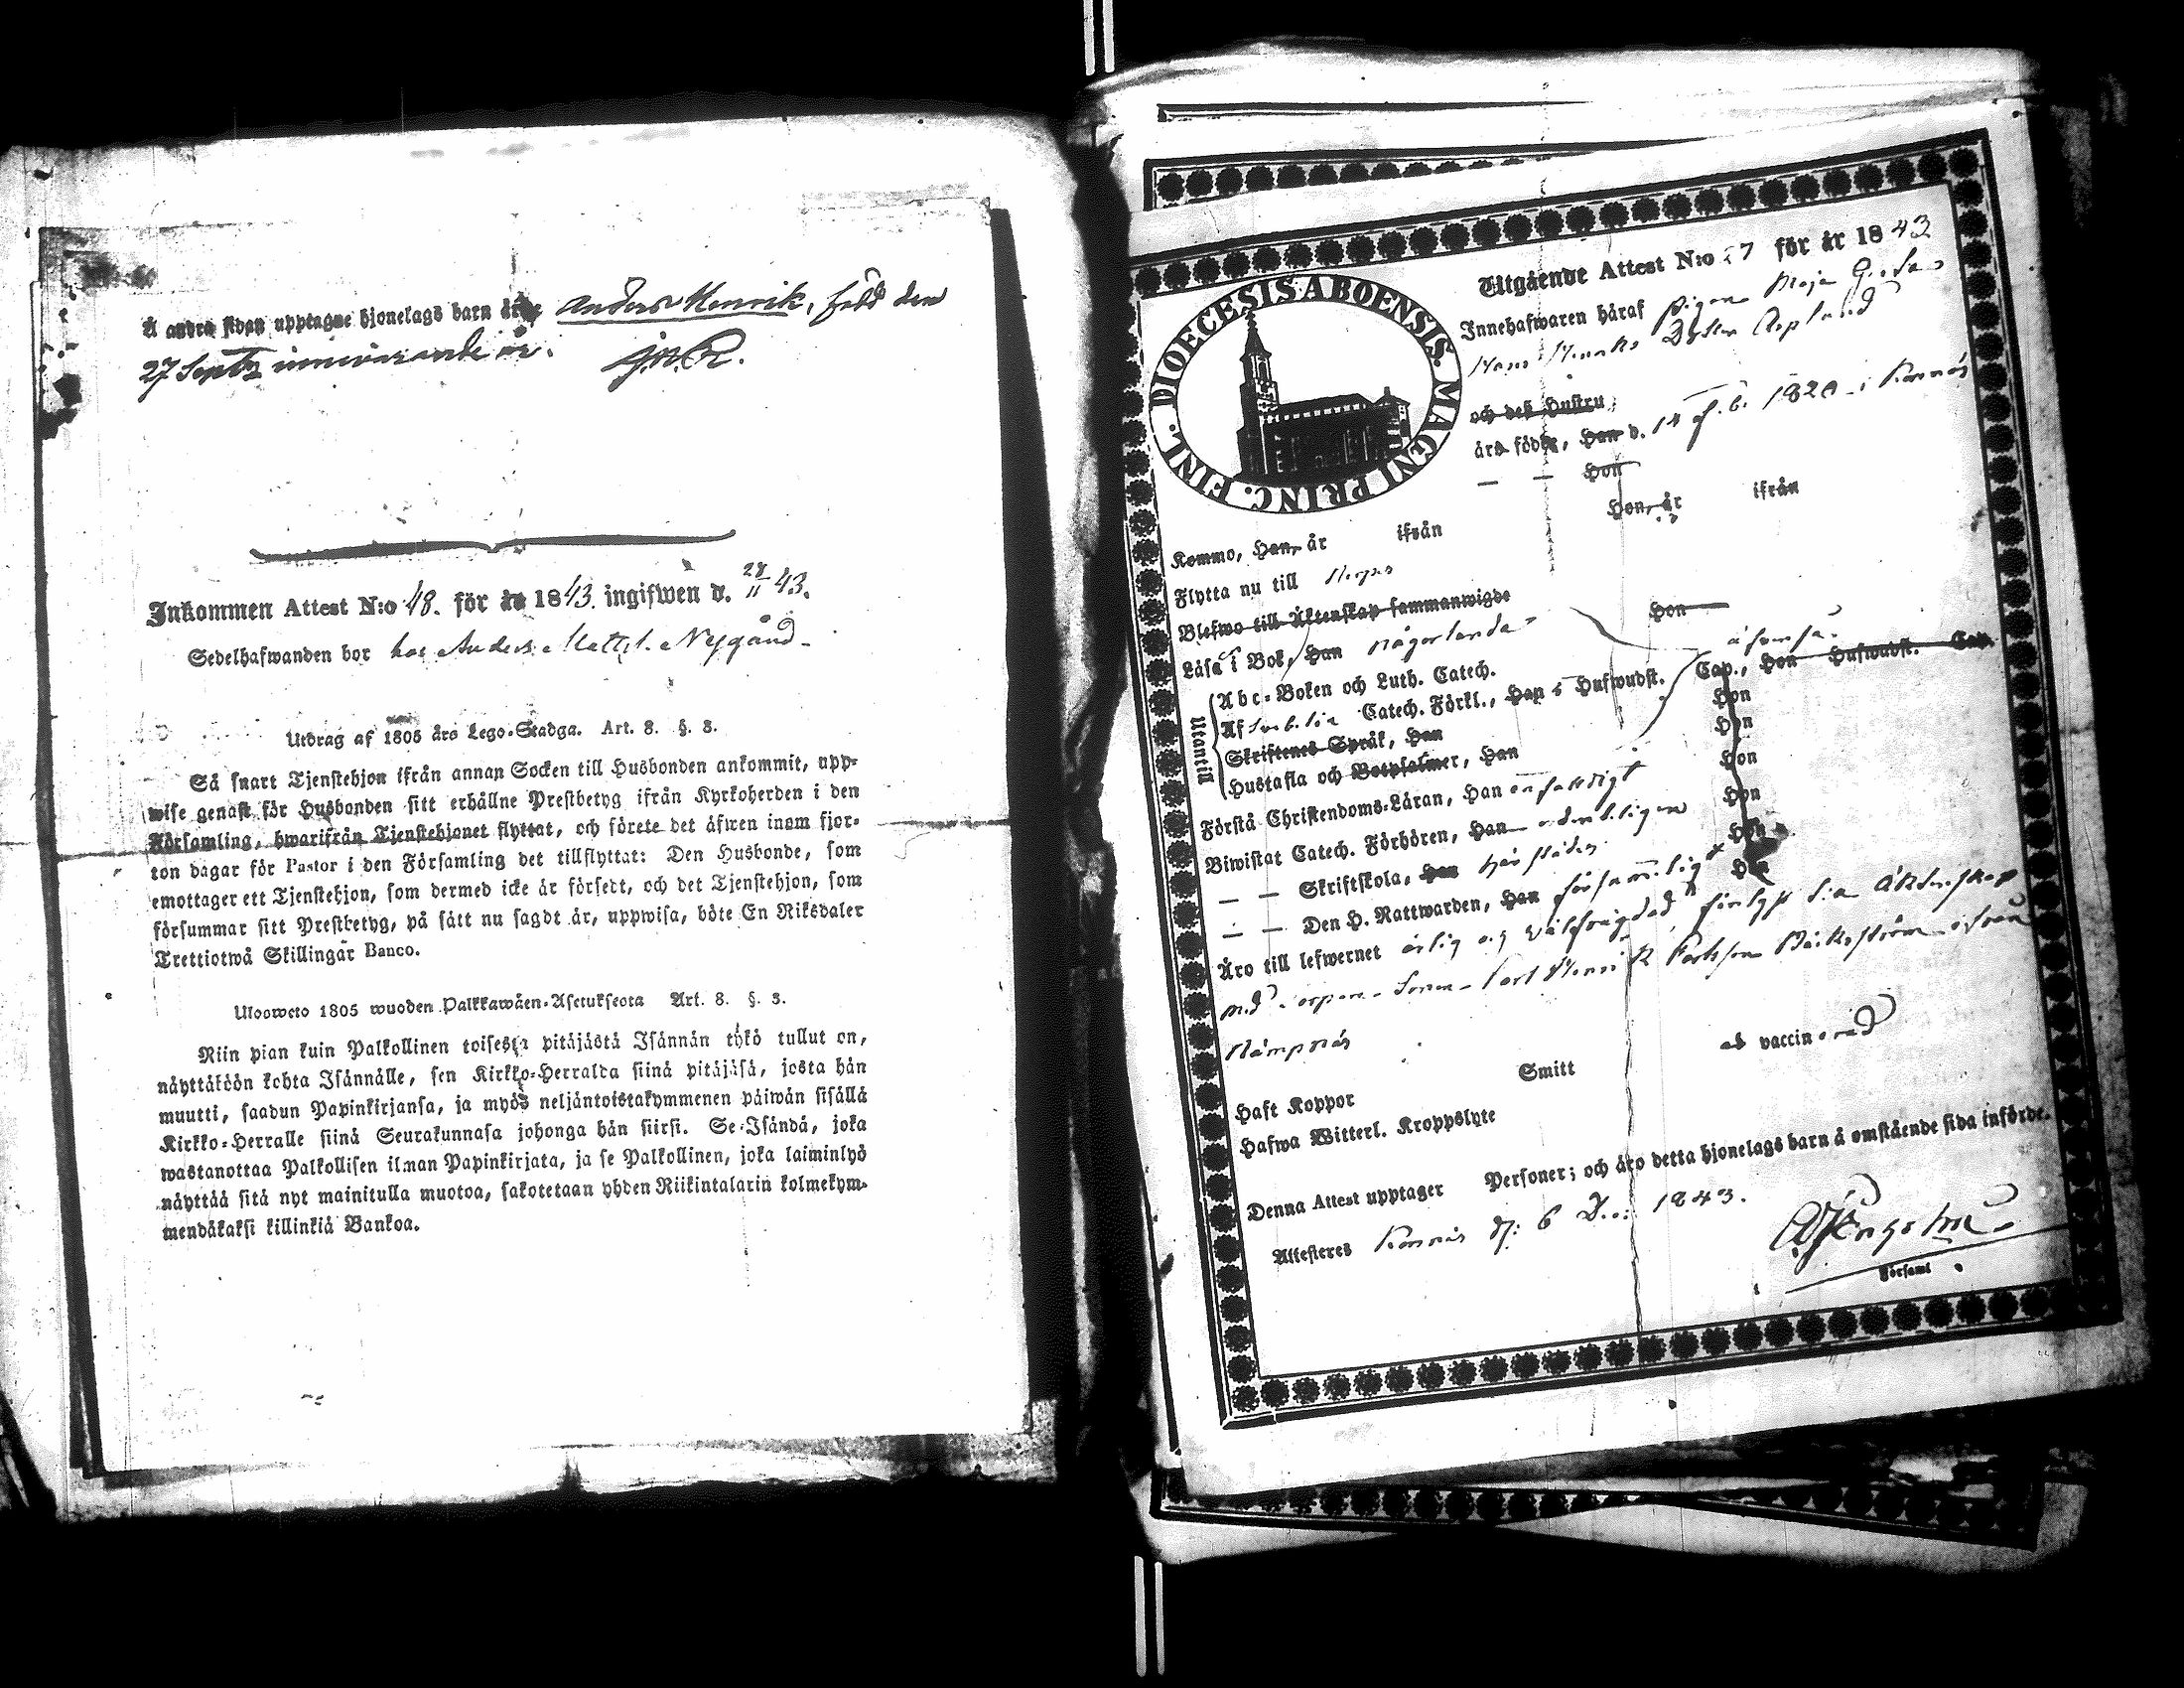 Å andra sidan upptagne hjonelags barn äro Anders Henrik, född den
27 Septbr innevarande år. J.M.R.
Inkommen Attest N:o 48. för år 1843. ingifwen d. 28/11 43.
Sedelhafwanden bor hos Anders Matts. Nygård
Utdrag af 1805 års Lego-Stadga. Art. 8. §. 3.
Så snart Tjenstehjon ifrån annan Socken till Husbonden ankommit, upp-
wise genast för Husbonden sitt erhållne Prestbetyg ifrån Kyrkoherden i den
Församling, hwarifrån Tjenstehjonet flyttat, och förete det äfwen inom fjor-
ton dagar för Pastor i den Församling det tillflyttat: Den Husbonde, som
emottager ett Tjenstehjon, som dermed icke är försedt, och det Tjenstehjon, som
försummar sitt Prestbetyg, på sätt nu sagdt är, uppwisa, böte En Riksdaler
Trettiotwå Skillingar Banco.
Uloosweto 1805 wuoden Palkkawäen-Asetuksesta Art. 8. §. 3.
Niin pian kuin Palkollinen toisesta pitäjästä Isännän tykö tullut on,
näyttäköön kohta Isännälle, sen Kirkko-Herralda siinä pitäjäsä, josta hän
muutti, saadun Papinkirjansa, ja myös neljäntoistakymmenen päiwän sisällä
Kirkko-Herralle siinä Seurakunnasa johonga hän siirsi. Se Isändä, joka
wastanottaa Palkollisen ilman Papinkirjata, ja se Palkollinen, joka laiminlyö
näyttää sitä nyt mainitulla muotoa, sakotetaan yhden Riikintalarin kolmekym-
mendäkaksi killinkiä Bankoa.
DIOECESIS ABOENSIS. MAGNI PRINC. FINL.
Utgående Attest N:o 27 för år 1843
Innehafwaren häraf pigan Maja Greta
Hans Henriks Dotter Asplund
och deß Hustru
äro födde, Han d. 14 Feb. 1820 i Korsnäs
— — Hon
Kommo, Han, år ifrån Hon, år ifrån
Flytta nu till
Blefwo till Äktenskap sammanwigde
Läsa i Bok, Han någorlunda Hon
Utantill
Abc-Boken och Luth. Catech. äfwenså.
Af Svebilii Catech. Förkl., Han 5 Hufwudst. Cap., Hon Hufwudst. Cap.
Skriftenes Språk, Han Hon
Hustafla och Botpsalmer, Han Hon
Förstå Christendoms-Läran, Han enfaldigt Hon
Biwistat Catech. Förhören, Han ordentligen Hon
— — Skriftskola, Han härstädes Hon
— — Den H. Nattwarden, Han församlig Hon
Äro till lefwernet ärlig och wälfrägdad förlyst till Äktenskap
med Torpare Sonen Carl Henrik Carlsson Bäckström ifrån
Nämpnäs
Haft Koppor Smitt är vaccinerad
Hafwa Witterl. Kroppslyte
Denna Attest upptager Personer; och äro detta hjonelags barn å omstående sida införde.
Attesteres Korsnäs d: 6 Dec: 1843.
Församl